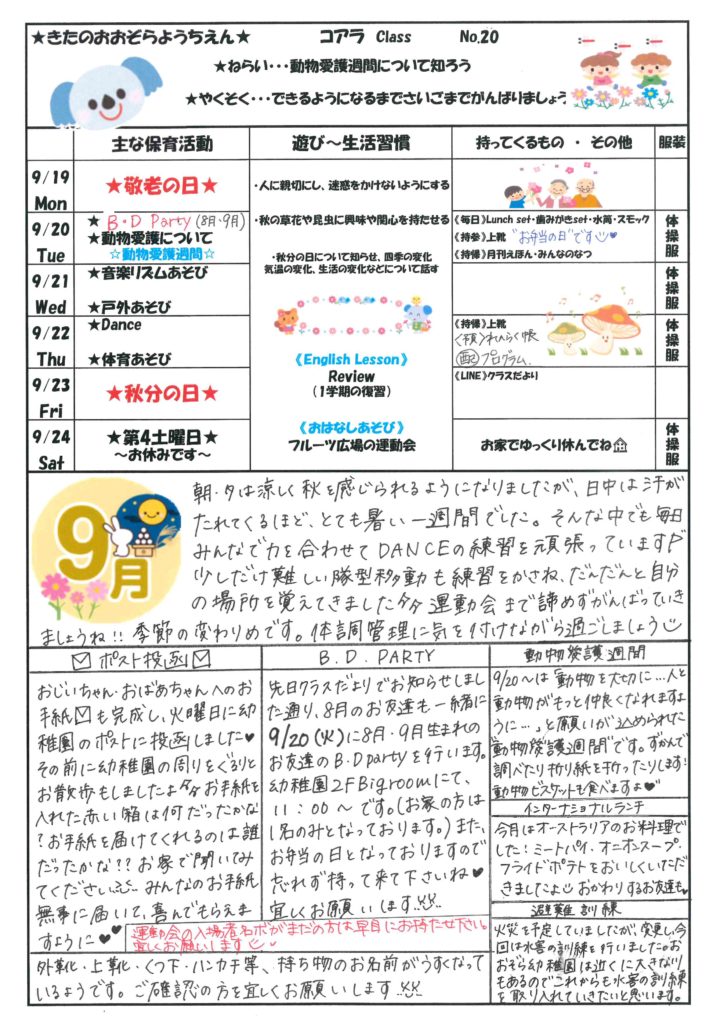 ★きたのおおぞらようちえん★ コアラ Class No.20
★ねらい・・・動物愛護週間について知ろう
★やくそく・・・できるようになるまでさいごまでがんばりましょう
主な保育活動 遊び～生活習慣 持ってくるもの ・ その他 服装
9/19
Mon
★敬老の日★
・人に親切にし、迷惑をかけないようにする
9/20
Tue
★ B・D Party (8月・9月)
★動物愛護について
☆動物愛護週間☆
・秋の草花や昆虫に興味や関心を持たせる
・秋分の日について知らせ、四季の変化
気温の変化、生活の変化などについて話す
《毎日》Lunch set・歯みがきset・水筒・スモック
《持参》上靴 "お弁当の日"です
《持帰》月刊えほん・みんなのなつ
体操服
9/21
Wed
★音楽リズムあそび
★戸外あそび
体操服
9/22
Thu
★Dance
★体育あそび
《English Lesson》
Review
(1学期の復習)
《持帰》上靴
<預>れんらく帳
配プログラム
体操服
9/23
Fri
★秋分の日★
《LINE》クラスだより
9/24
Sat
★第4土曜日★
～お休みです～
《おはなしあそび》
フルーツ広場の運動会
お家でゆっくり休んでね
体操服
9月
朝・夕は涼しく秋を感じられるようになりましたが、日中は汗が
たれてくるほど、とても暑い一週間でした。そんな中でも毎日
みんなで力を合わせてDANCEの練習を頑張っています
少しだけ難しい隊型移動も練習をかさね、だんだんと自分
の場所を覚えてきました 運動会まで諦めずがんばっていき
ましょうね!! 季節の変わりめです。体調管理に気を付けながら過ごしましょう
ポスト投函
おじいちゃん・おばあちゃんへのお
手紙も完成し、火曜日に幼
稚園のポストに投函しました♥
その前に幼稚園の周りをぐるりと
お散歩もしましたよ お手紙を
入れた赤い箱は何だったかな
?お手紙を届けてくれるのは誰
だったかな?? お家で聞いてみ
てください みんなのお手紙
無事に届いて、喜んでもらえま
すように♥♥
B.D.PARTY
先日クラスだよりでお知らせしまし
た通り、8月のお友達も一緒に
9/20(火)に8月・9月生まれの
お友達のB.Dpartyを行います。
幼稚園2FBigroomにて、
11:00～です。(お家の方は
1名のみとなっております。)また、
お弁当の日となっておりますので
忘れず持って来て下さいね♥
宜しくお願いします!!
運動会の入場者名ボがまだの方は早目にお持たせ下さい。
宜しくお願いします♥
外靴・上靴・くつ下・ハンカチ等、持ち物のお名前がうすくなって
いるようです。ご確認の方を宜しくお願いします!!
動物愛護週間
9/20～は「動物を大切に…人と
動物がもっと仲良くなれますよ
うに…」と願いが込められた
"動物愛護週間"です。ずかんで
調べたり折り紙を折ったりします!
動物ビスケットも食べますよ♥
インターナショナルランチ
今月はオーストラリアのお料理で
した!ミートパイ、オニオンスープ、
フライドポテトをおいしくいただ
きましたよ おかわりするお友達も♥
避難訓練
火災を予定していましたが、変更し、今
回は水害の訓練を行いました。お
おぞら幼稚園は近くに大きな川
もあるのでこれからも水害の訓練
を取り入れていきたいと思います。